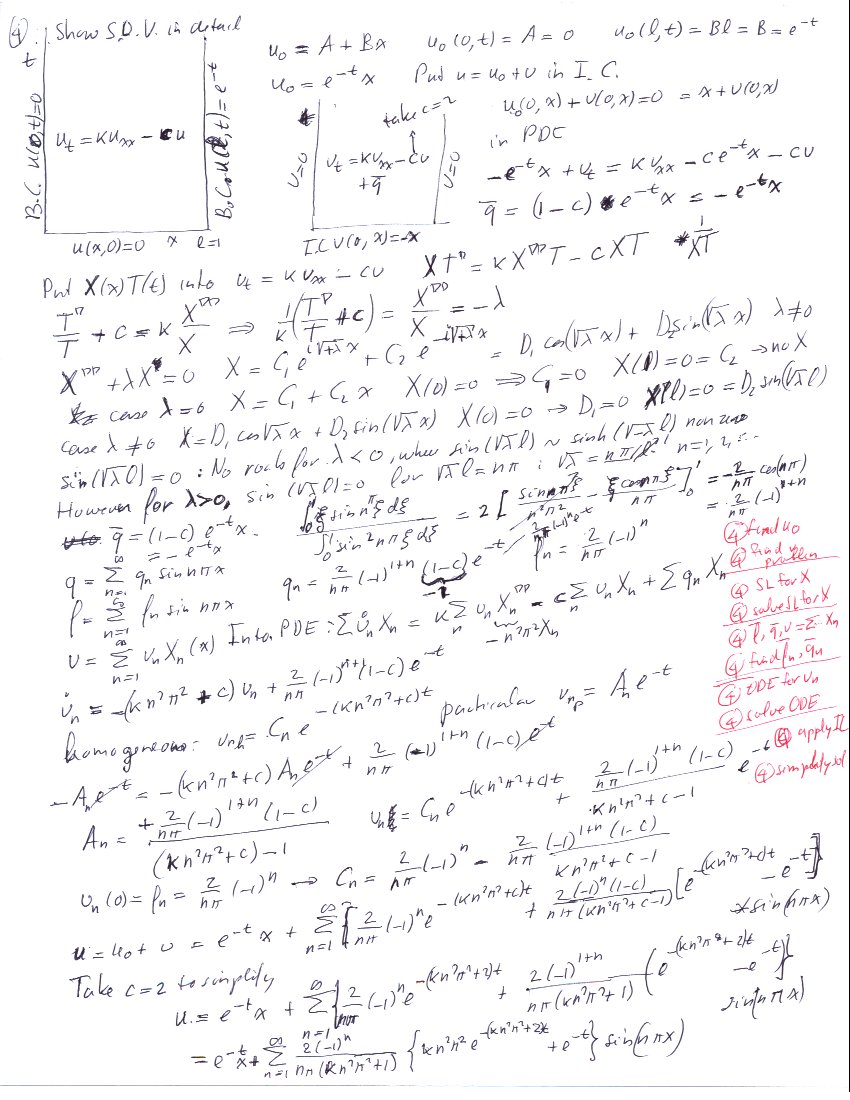 ④. Show S.O.V. in detail
t
B.C. u(0,t)=0
u_t = κu_xx - cu
B.C. u(l,t) = e^{-t}
u(x,0)=0 x l=1
u_0 = A + Bx u_0(0,t) = A = 0 u_0(l,t) = Bl = B = e^{-t}
u_0 = e^{-t} x Put u = u_0 + v in I.C.
take c=2
u_0(0,x) + v(0,x) = 0 = x + v(0,x)
in PDE
t
v=0
v_t = κv_xx - cv + q̄
v=0
I.C v(0,x) = -x
-e^{-t}x + v_t = κv_xx - ce^{-t}x - cv
q̄ = (1-c) e^{-t}x = -e^{-t}x
Put X(x)T(t) into v_t = κv_xx - cv XT' = κX''T - cXT * 1/XT
T'/T + c = κ X''/X ⇒ 1/κ (T'/T + c) = X''/X = -λ
X'' + λX = 0 X = C_1 e^{i√λ x} + C_2 e^{-i√λ x} = D_1 cos(√λ x) + D_2 sin(√λ x) λ≠0
case λ=0 X = C_1 + C_2 x X(0)=0 ⇒ C_1=0 X(1)=0=C_2 → no X
case λ≠0 X = D_1 cos√λ x + D_2 sin(√λ x) X(0)=0 → D_1=0 X(l)=0 = D_2 sin(√λ l)
sin(√λ l) = 0 : No roots for λ<0, when sin(√λ l) ~ sinh(√-λ l) nonzero
However for λ>0, sin(√λ l)=0 for √λ l = nπ : √λ = nπ/l n=1,2,...
q̄ = (1-c) e^{-t}x = -e^{-t}x
∫_0^1 ξ sin nπξ dξ / ∫_0^1 sin² nπξ dξ = 2[ sin nπξ / n²π² - ξ cos nπξ / nπ ]_0^1 = -2/nπ cos(nπ)
= 2/nπ (-1)^{1+n}
q = Σ_{n=1}^∞ q_n sin nπx q_n = 2/nπ (-1)^{1+n} (1-c) e^{-t} f_n = 2/nπ (-1)^n
-1
f = Σ_{n=1}^∞ f_n sin nπx
v = Σ_{n=1}^∞ v_n X_n(x) Into PDE: Σ v̇_n X_n = κ Σ_n v_n X_n'' - c Σ_n v_n X_n + Σ q_n X_n
-n²π² X_n
v̇_n = -(κn²π² + c) v_n + 2/nπ (-1)^{n+1} (1-c) e^{-t}
homogeneous: v_nh = C_n e^{-(κn²π²+c)t} particular v_np = A_n e^{-t}
-A_n e^{-t} = -(κn²π²+c) A_n e^{-t} + 2/nπ (-1)^{1+n} (1-c) e^{-t}
A_n = + 2/nπ (-1)^{1+n} (1-c) / ((κn²π²+c)-1) v_n = C_n e^{-(κn²π²+c)t} + 2/nπ (-1)^{1+n} (1-c) / (κn²π²+c-1) e^{-t}
v_n(0) = f_n = 2/nπ (-1)^n → C_n = 2/nπ (-1)^n - 2/nπ (-1)^{1+n} (1-c) / (κn²π²+c-1)
u = u_0 + v = e^{-t}x + Σ_{n=1}^∞ { 2/nπ (-1)^n e^{-(κn²π²+c)t} + 2(-1)^n (1-c) / nπ(κn²π²+c-1) [e^{-(κn²π²+c)t} - e^{-t}] }
* sin(nπx)
Take c=2 to simplify
u = e^{-t}x + Σ_{n=1}^∞ { 2/nπ (-1)^n e^{-(κn²π²+2)t} + 2(-1)^{1+n} / nπ(κn²π²+1) (e^{-(κn²π²+2)t} - e^{-t}) }
sin(nπx)
= e^{-t}x + Σ_{n=1}^∞ 2(-1)^n / nπ(κn²π²+1) { κn²π² e^{-(κn²π²+2)t} + e^{-t} } sin(nπx)
④ find u_0
④ find v problem
④ SL for X
④ solve SL for X
④ f, q, v = Σ.. X_n
④ find f_n, q_n
④ ODE for v_n
④ solve ODE
④ apply IC
④ simplify sol